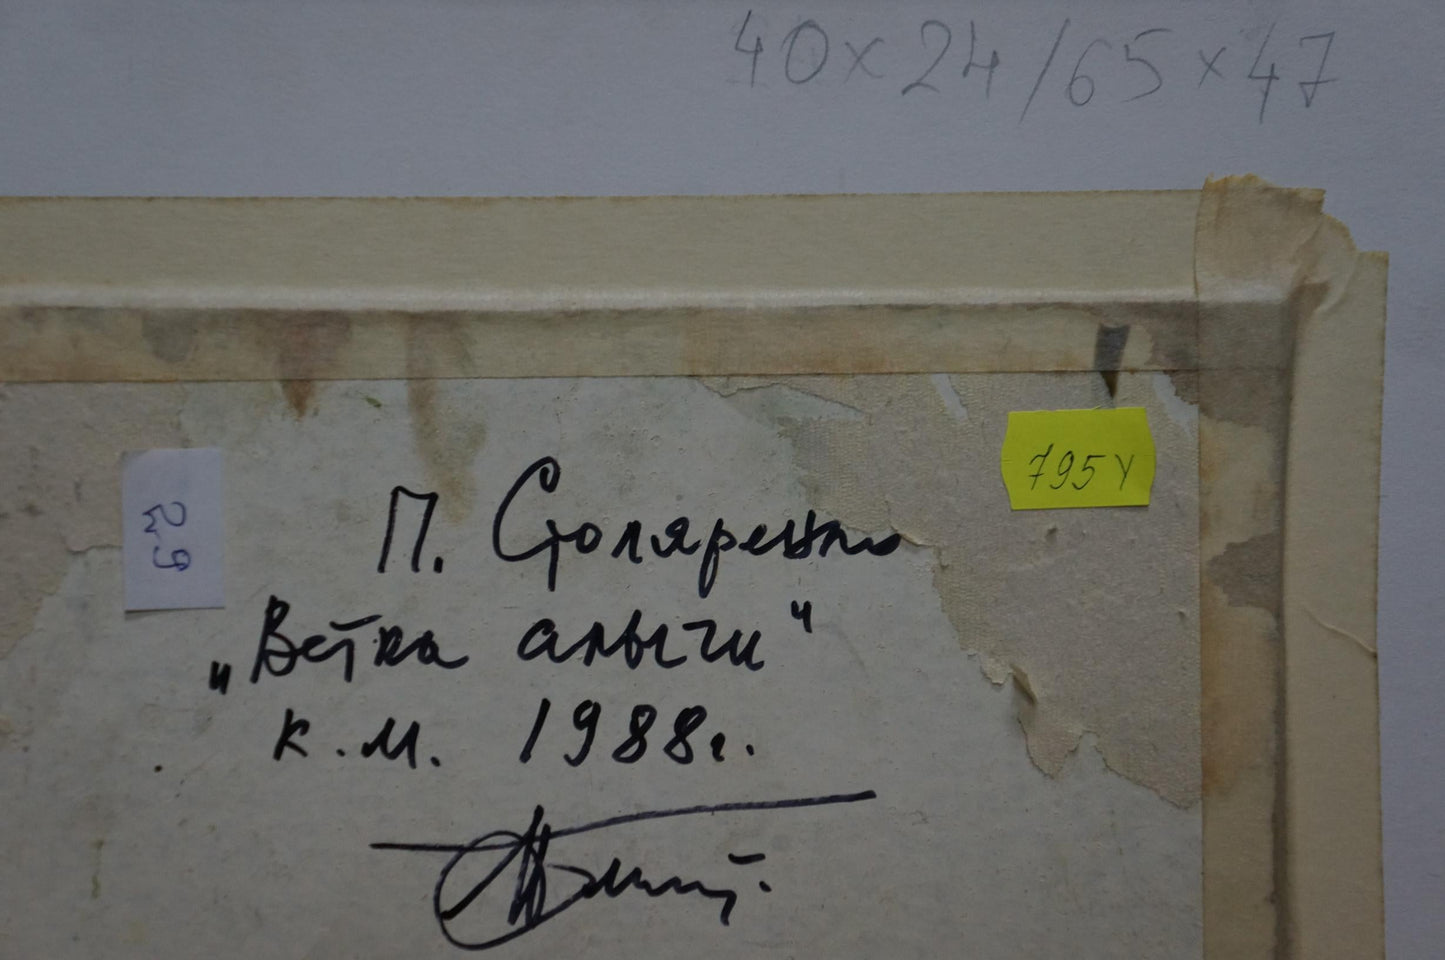 40 x 24 / 65 x 47
795У
29
П. Столяренко
„Ветка алычи"
к.м. 1988г.